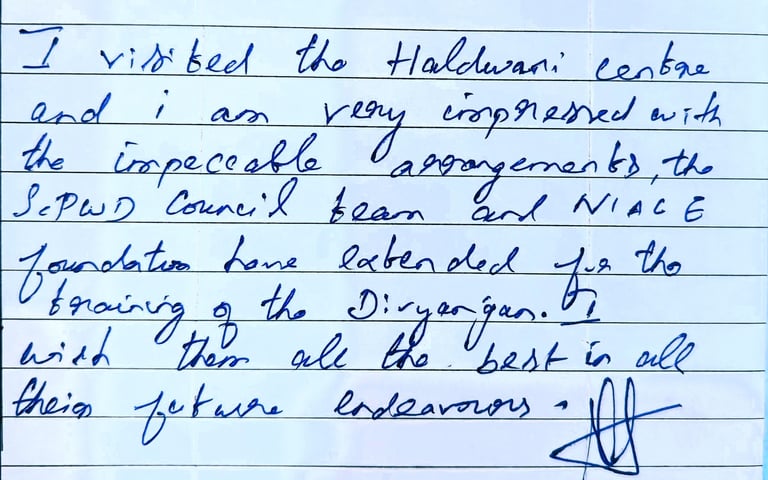 I visited the Haldwani centre
and i am very impressed with
the impeccable arrangements, the
ScPwD Council team and NIACE
foundation have extended for the
training of the Divyangan. I
wish them all the best in all
their future endeavours.